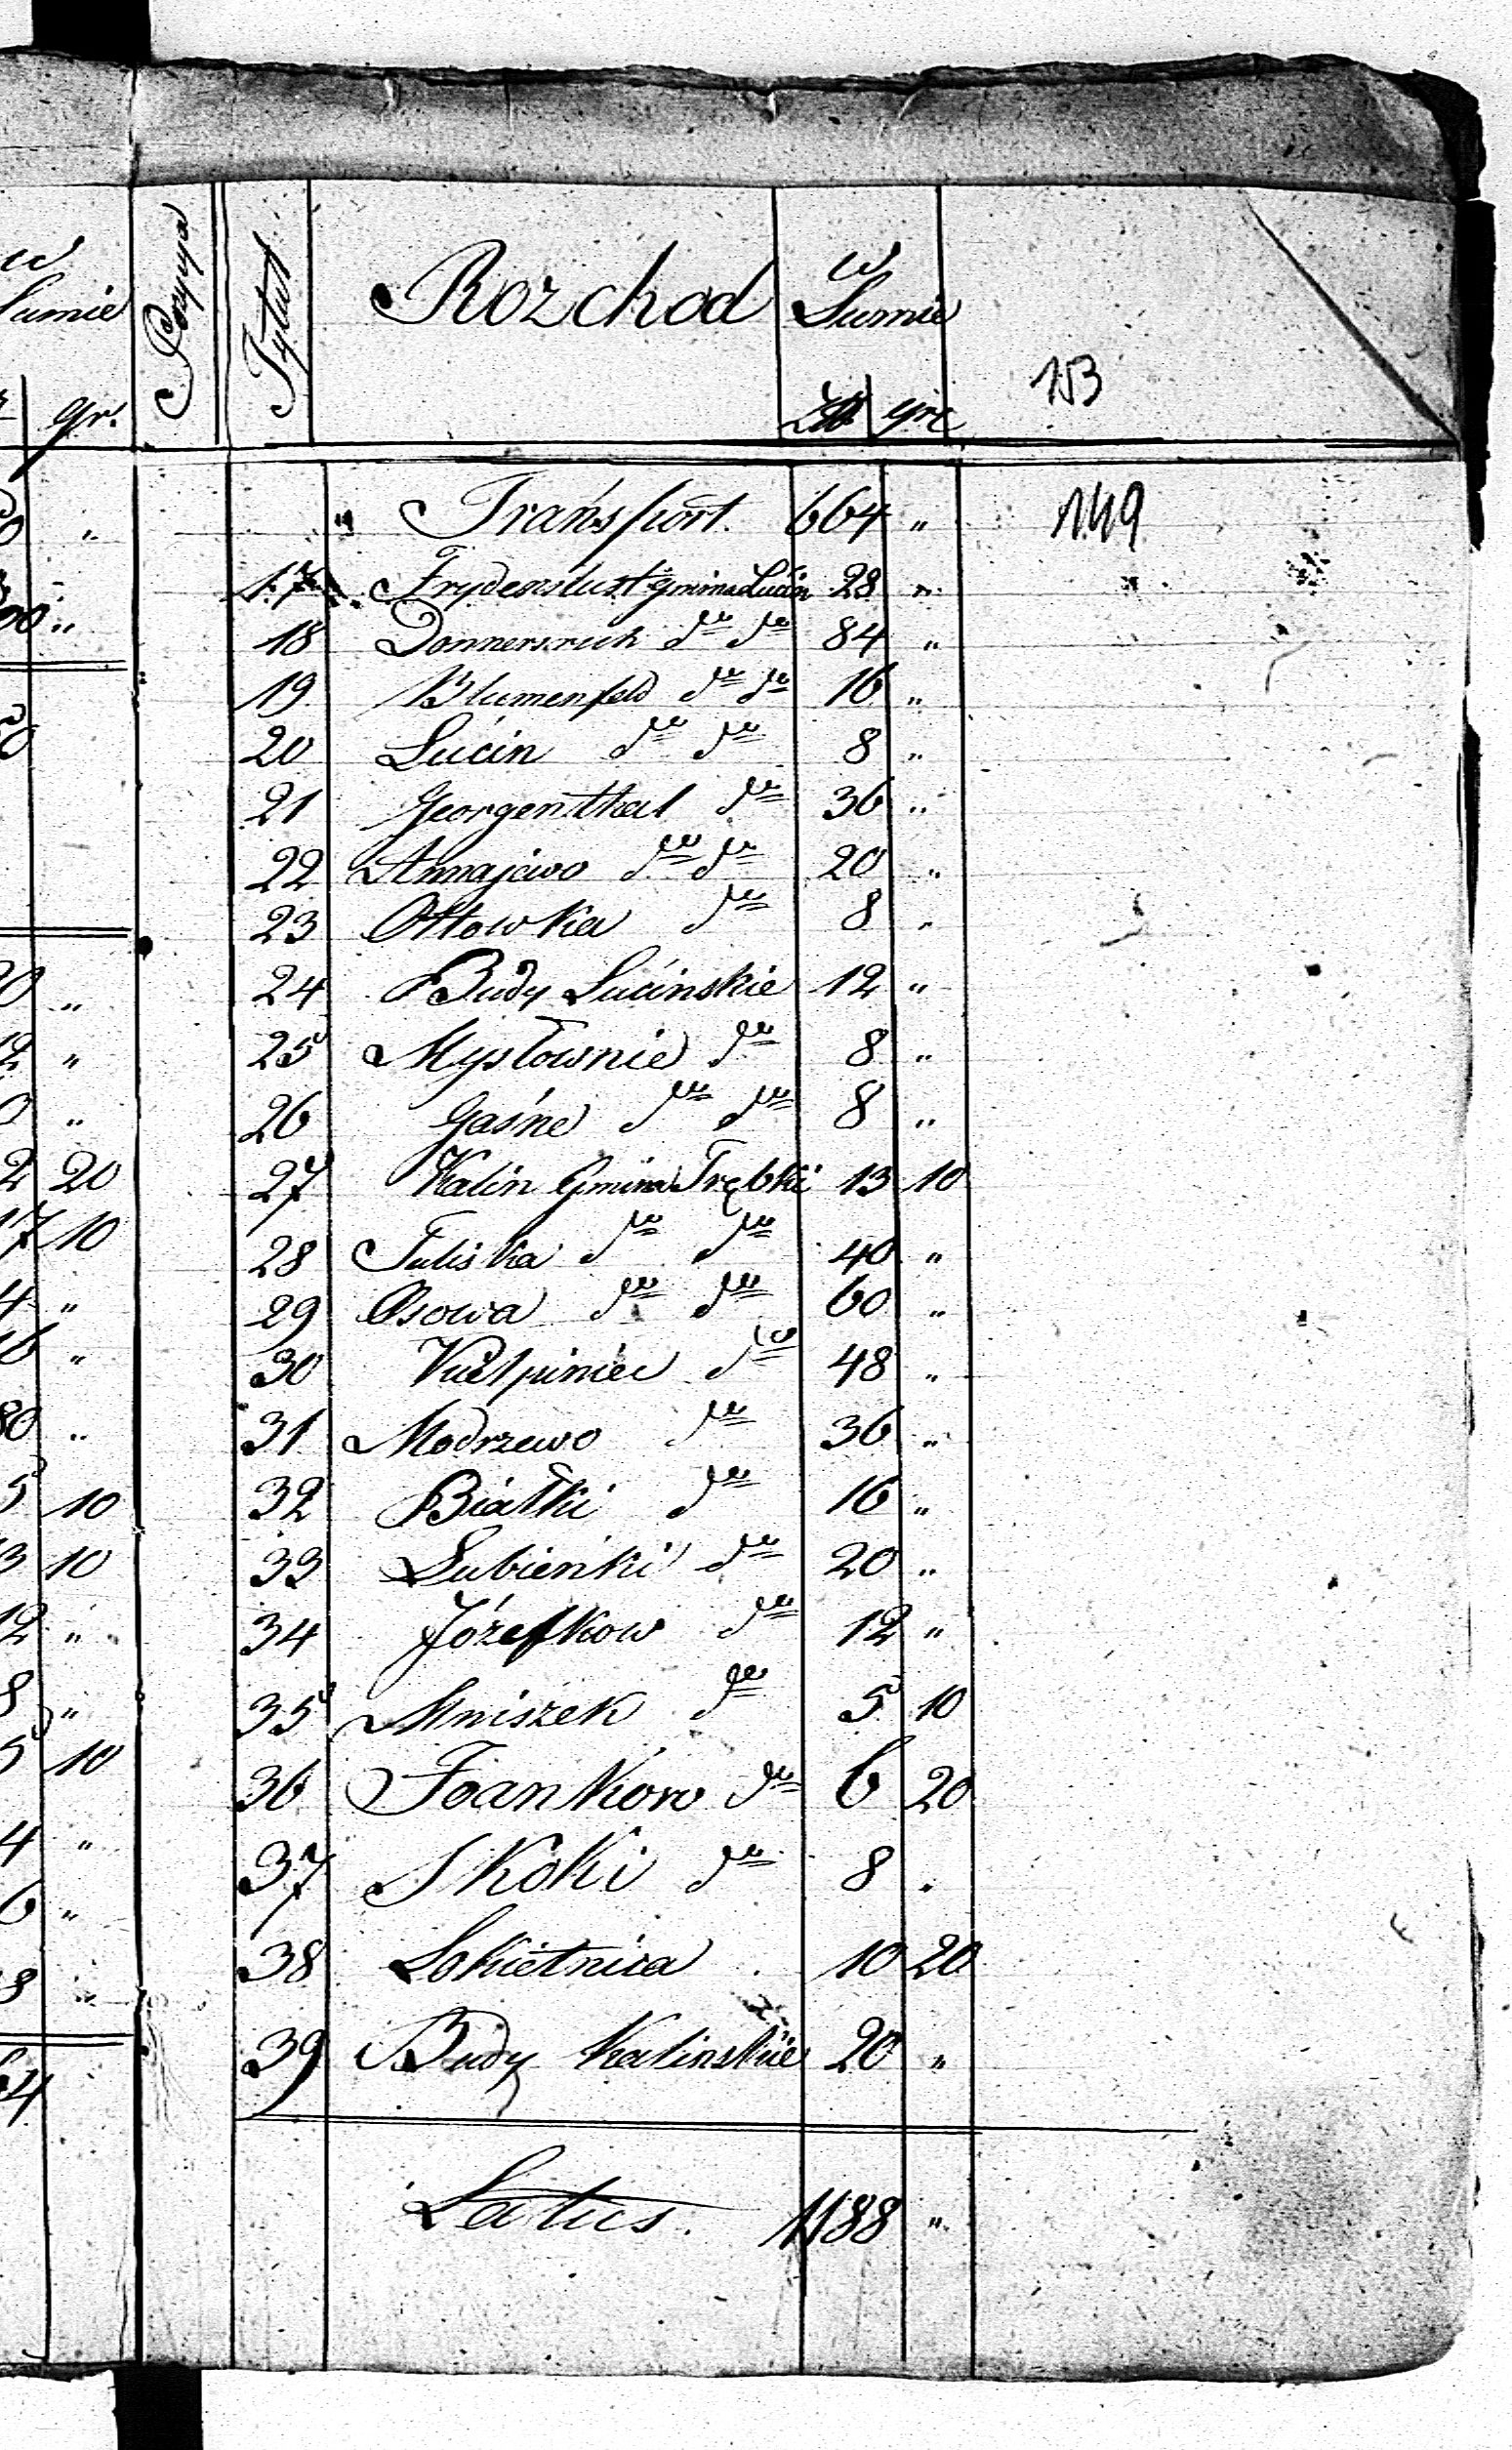 w
Sumie
gr.
Pozycya
Tytuł
Rozchod
w
Sumie
Zł gr
153
Transport. 664 "
149
17 Frydenslust Gmina Lucin 28 "
18 Donnersruh dto dto 84 "
19 Blumenfeld dto dto 16 "
20 Lucin dto dto 8 "
21 Georgenthal dto 36 "
22 Annajewo dto dto 20 "
23 Ottowka dto 8 "
24 Budy Lucinskie 12 "
25 Mysłownie dto 8 "
26 Gaśne dto dto 8 "
27 Kalin Gmina Trębki 13 10
28 Taliska dto dto 40 "
29 Osowa dto dto 60 "
30 dto 48 "
31 Modrzewo dto 36 "
32 Białki dto 16 "
33 Lubieńki dto 20 "
34 Józefkow dto 12 "
35 Mniszek dto 5 10
36 Frankowo dto 6 20
37 Skoki dto 8 "
38 Lokietnica 10 20
39 Budy Kalinskie 20 "
Latus. 1188 "